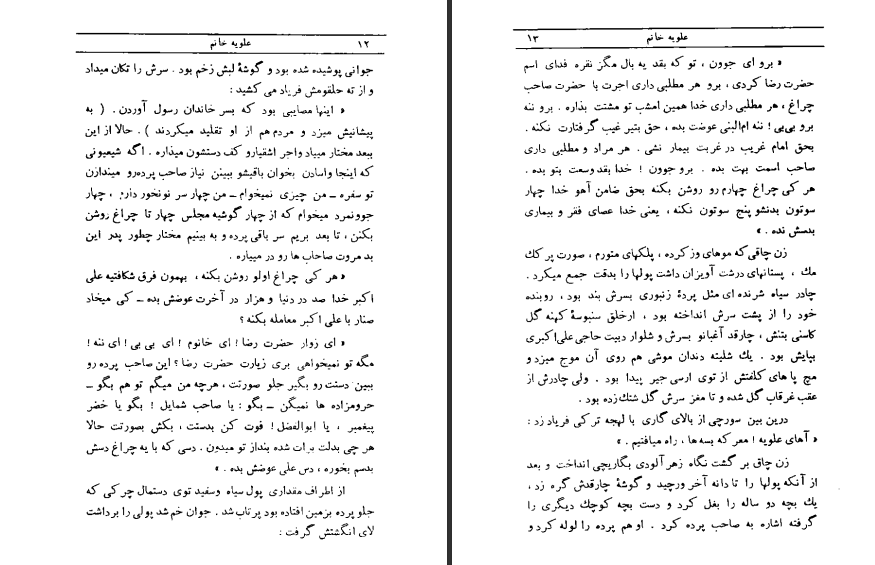 ۱۲ علویه خانم
جوانی پوشیده شده بود و گوشهٔ لبش زخم بود . سرش را تکان میداد
و از ته حلقومش فریاد می کشید :
« اینها مصایبی بود که بسر خاندان رسول آوردن . ( به
پیشانیش میزد و مردم هم از او تقلید میکردند ) . حالا از این
ببعد مختار میباد واجر اشقیارو کف دستشون میذاره . اگه شیعیونی
که اینجا واسادن بخوان باقیشو ببینن نیاز صاحب پرده‌رو میندازن
تو سفره ــ من چیزی نمیخوام ــ من چهار سر نونخور دارم ، چهار
جوونمرد میخوام که از چهار گوشیه مجلس چهار تا چراغ روشن
بکنن ، تا بعد بریم سر باقی پرده و به بینیم مختار چطور پدر این
بد مروت صاحاب ها رو در میباره .
« هر کی چراغ اولو روشن بکنه ، بهمون فرق شکافتیه علی
اکبر خدا صد در دنیا و هزار در آخرت عوضش بده ــ کی میخاد
صنار با علی اکبر معامله بکنه ؟
« ای زوار حضرت رضا ! ای خانوم ! ای بی بی ! ای ننه !
مگه تو نمیخواهی بری زیارت حضرت رضا ؟ این صاحب پرده رو
ببین دستت رو بگیر جلو صورتت ، هرچه من میگم تو هم بگو ــ
حرومزاده ها نمیگن ــ بگو : یا صاحب شمایل ! بگو یا خضر
پیغمبر ، یا ابوالفضل ! فوت کن بدستت ، بکش بصورتت حالا
هر چی بدلت برات شده بنداز تو میدون . دسی که با یه چراغ دسش
بدسم بخوره ، دس علی عوضش بده . »
از اطراف مقداری پول سیاه وسفید توی دستمال چرکی که
جلو پرده بزمین افتاده بود پرتاب شد . جوان خم شد پولی را برداشت
لای انگشتش گرفت :
علویه خانم ۱۳
« برو ای جوون ، تو که بقد یه بال مگز نقره فدای اسم
حضرت رضا کردی ، برو هر مطلبی داری اجرت با حضرت صاحب
چراغ ، هر مطلبی داری خدا همین امشب تو مشتت بذاره . برو ننه
برو بی‌بی ! ننه ام‌البنی عوضت بده ، حق بتیر غیب گرفتارت نکنه .
بحق امام غریب در غربت بیمار نشی . هر مراد و مطلبی داری
صاحب اسمت بهت بده . برو جوون ! خدا بقد وسعت بتو بده .
هر کی چراغ چهارم رو روشن بکنه بحق ضامن آهو خدا چهار
سوتون بدنشو پنج سوتون نکنه ، یعنی خدا عصای فقر و بیماری
بدسش نده . »
زن چاقی که موهای وز کرده ، پلکهای متورم ، صورت پر کك
مك ، پستانهای درشت آویزان داشت پولها را بدقت جمع میکرد .
چادر سیاه شرنده ای مثل پردهٔ زنبوری بسرش بند بود ، روبنده
خود را از پشت سرش انداخته بود ، ارخلق سنبوسهٔ کهنه گل
کاسنی بتنش ، چارقد آغبانو بسرش و شلوار دبیت حاجی علی‌اکبری
بپایش بود . یك شلیته دندان موشی هم روی آن موج میزد و
مچ پا های کلفتش از توی ارسی جیر پیدا بود . ولی چادرش از
عقب غرقاب گل شده و تا مغز سرش گل شتك زده بود .
درین بین سورچی از بالای گاری با لهجه ترکی فریاد زد :
« آهای علویه ! معرکه بسه‌ها ، راه میافتیم . »
زن چاق بر گشت نگاه زهر آلودی بگاریچی انداخت و بعد
از آنکه پولها را تا دانه آخر ورچید و گوشهٔ چارقدش گره زد ،
یك بچه دو ساله را بغل کرد و دست بچه کوچك دیگری را
گرفته اشاره به صاحب پرده کرد . او هم پرده را لوله کرد و